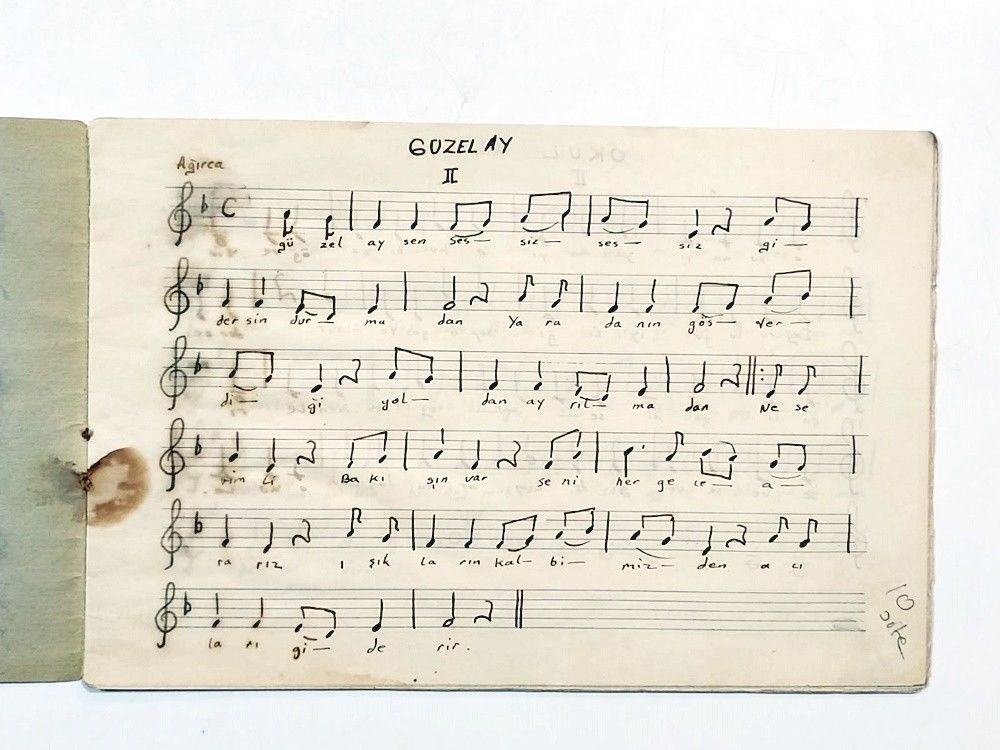 GÜZEL AY
II
Ağırca
gü zel ay sen ses— siz— ses— siz gi—
der sin dur— ma dan Ya ra da nın gös— ter—
di— ği yol— dan ay rıl— ma dan Ne se
rin li Ba kı şın var se ni her ge ce— a—
ra rız ı şık la rın kal— bi— miz— den a cı
la rı gi— de rir.
10